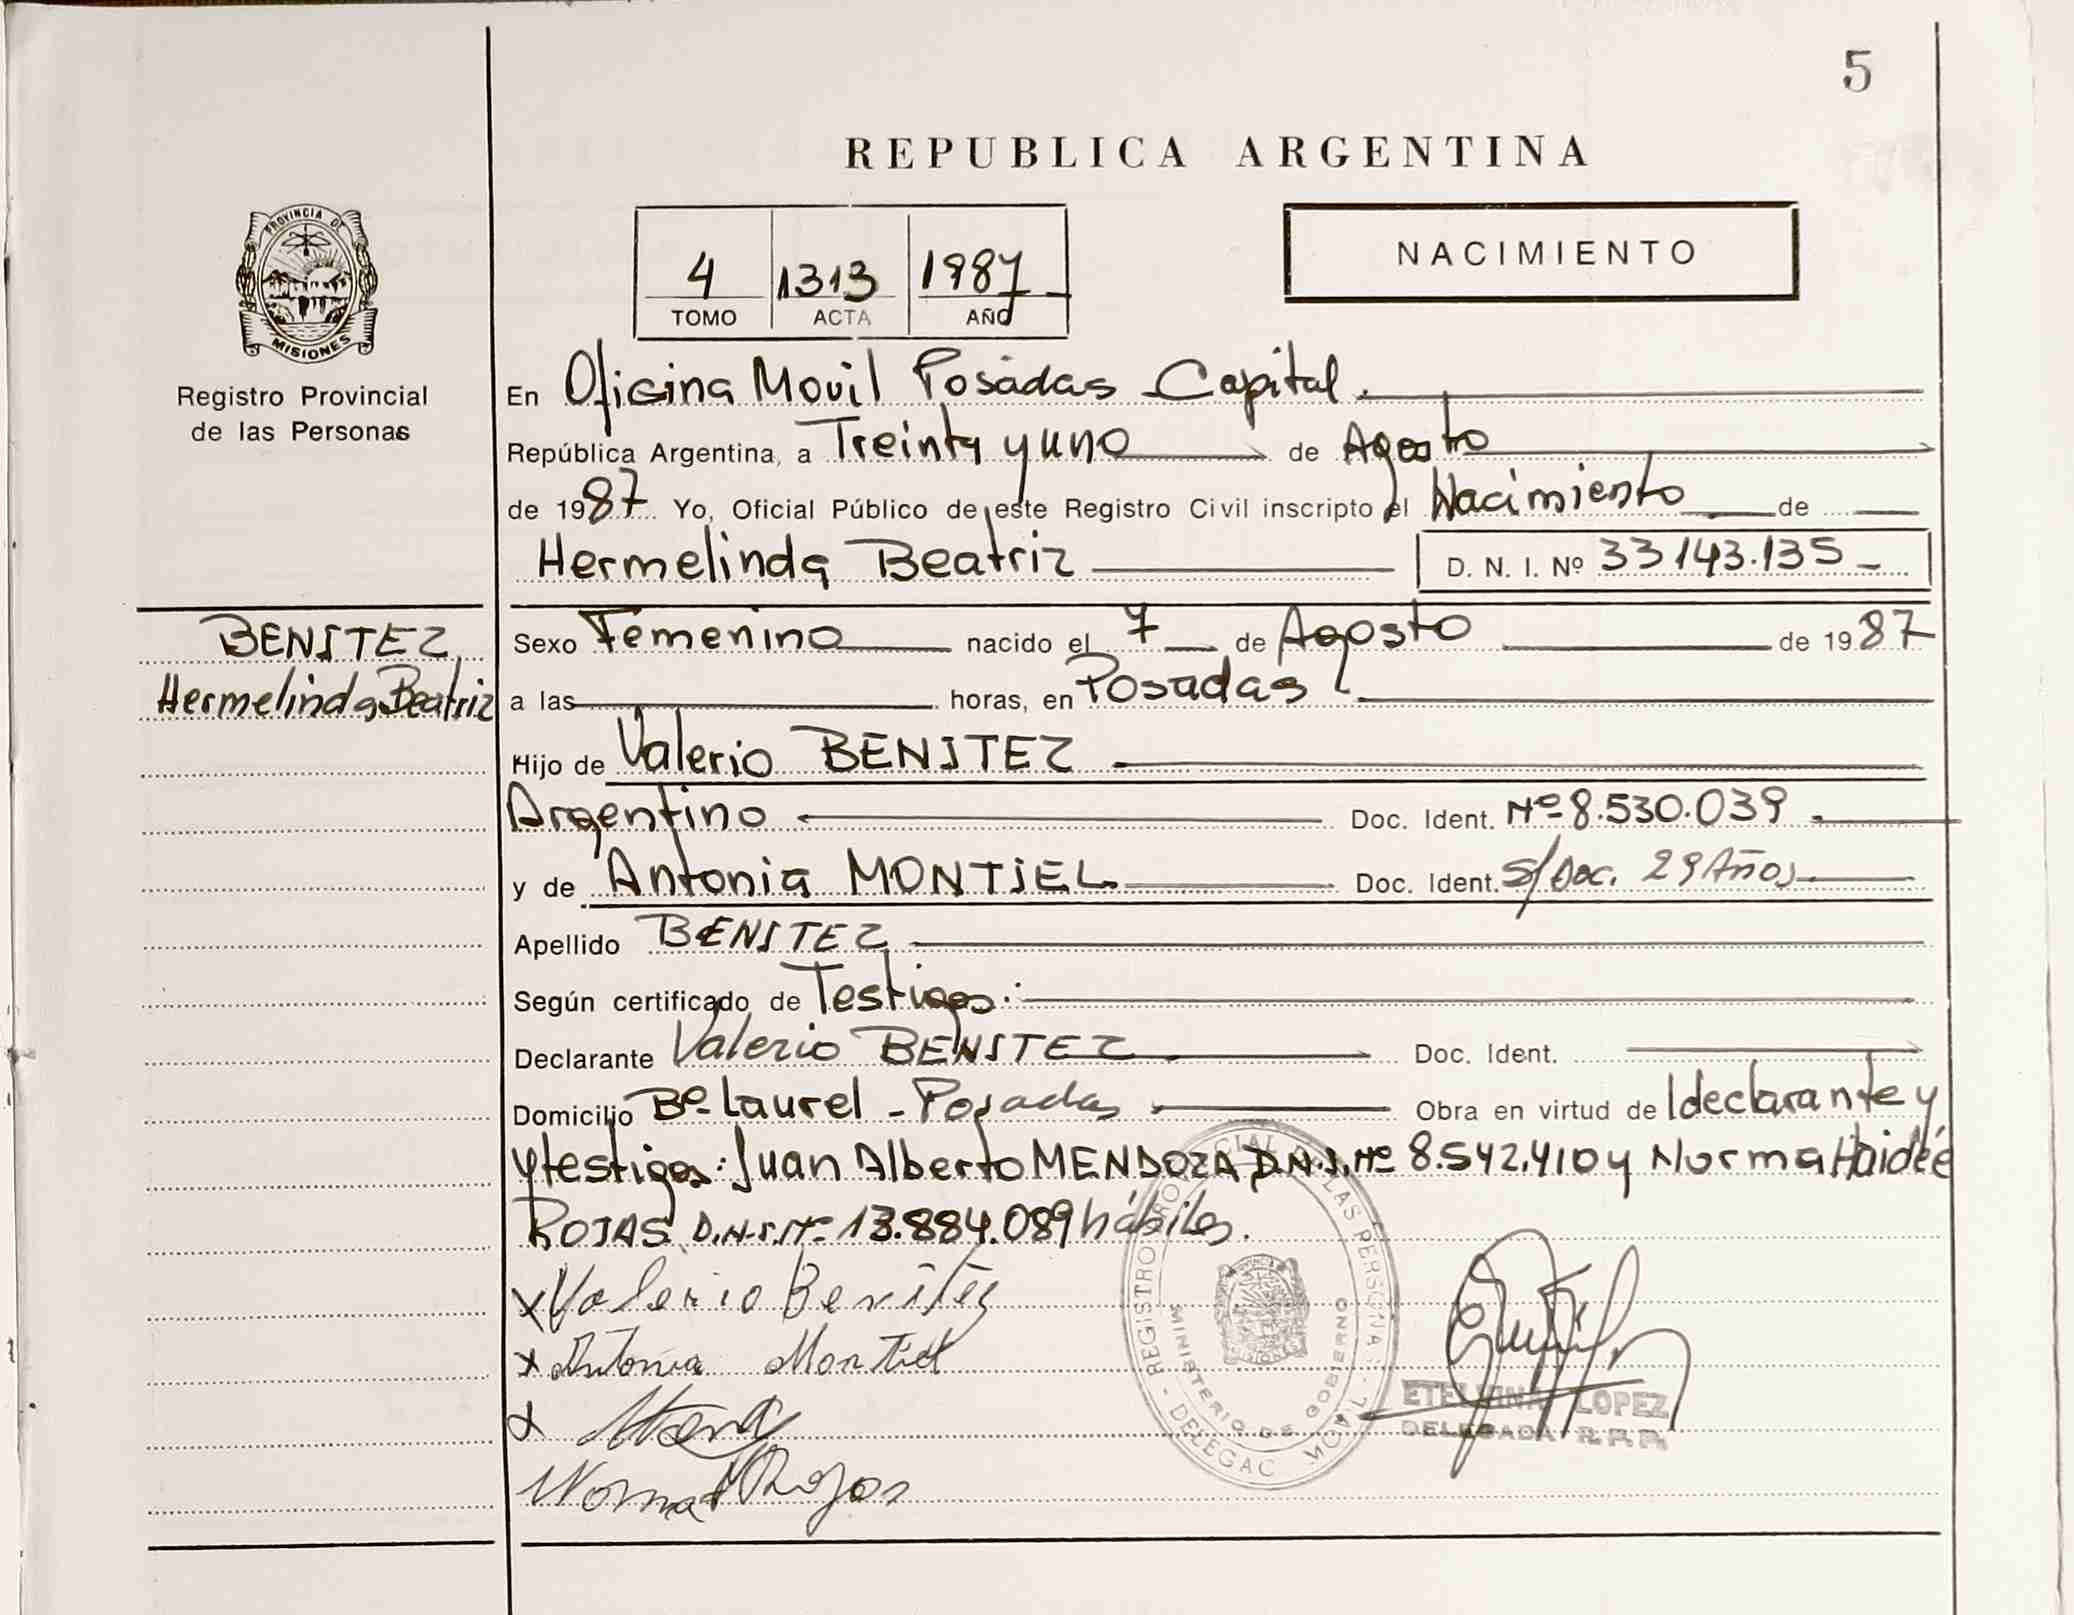 5
REPUBLICA ARGENTINA
PROVINCIA DE
MISIONES
Registro Provincial
de las Personas
4 1313 1987
TOMO ACTA AÑO
NACIMIENTO
En Oficina Movil Posadas Capital.
República Argentina, a Treinta y uno de Agosto
de 1987 Yo, Oficial Público de este Registro Civil inscripto el Nacimiento de
Hermelinda Beatriz D. N. I. Nº 33143.135
BENITEZ
Hermelinda Beatriz
Sexo Femenino nacido el 7 de Agosto de 1987
a las horas, en Posadas
Hijo de Valerio BENITEZ
Argentino Doc. Ident. Nº 8.530.039
y de Antonia MONTIEL Doc. Ident. S/Doc. 29 Años
Apellido BENITEZ
Según certificado de Testigos:
Declarante Valerio BENITEZ Doc. Ident.
Domicilio Bº Laurel - Posadas Obra en virtud de l declarante y
y testigos: Juan Alberto MENDOZA D.N.I. Nº 8.542.410 y Norma Haideé
ROJAS D.N.I. Nº 13.884.089 hábiles.
x Valerio Benítez
x Antonia Montiel
x
Norma H Rojas
REGISTRO PROVINCIAL DE LAS PERSONAS - DELEGAC MOVIL -
MINISTERIO DE GOBIERNO
ETELVINA LOPEZ
DELEGADA R.P.P.